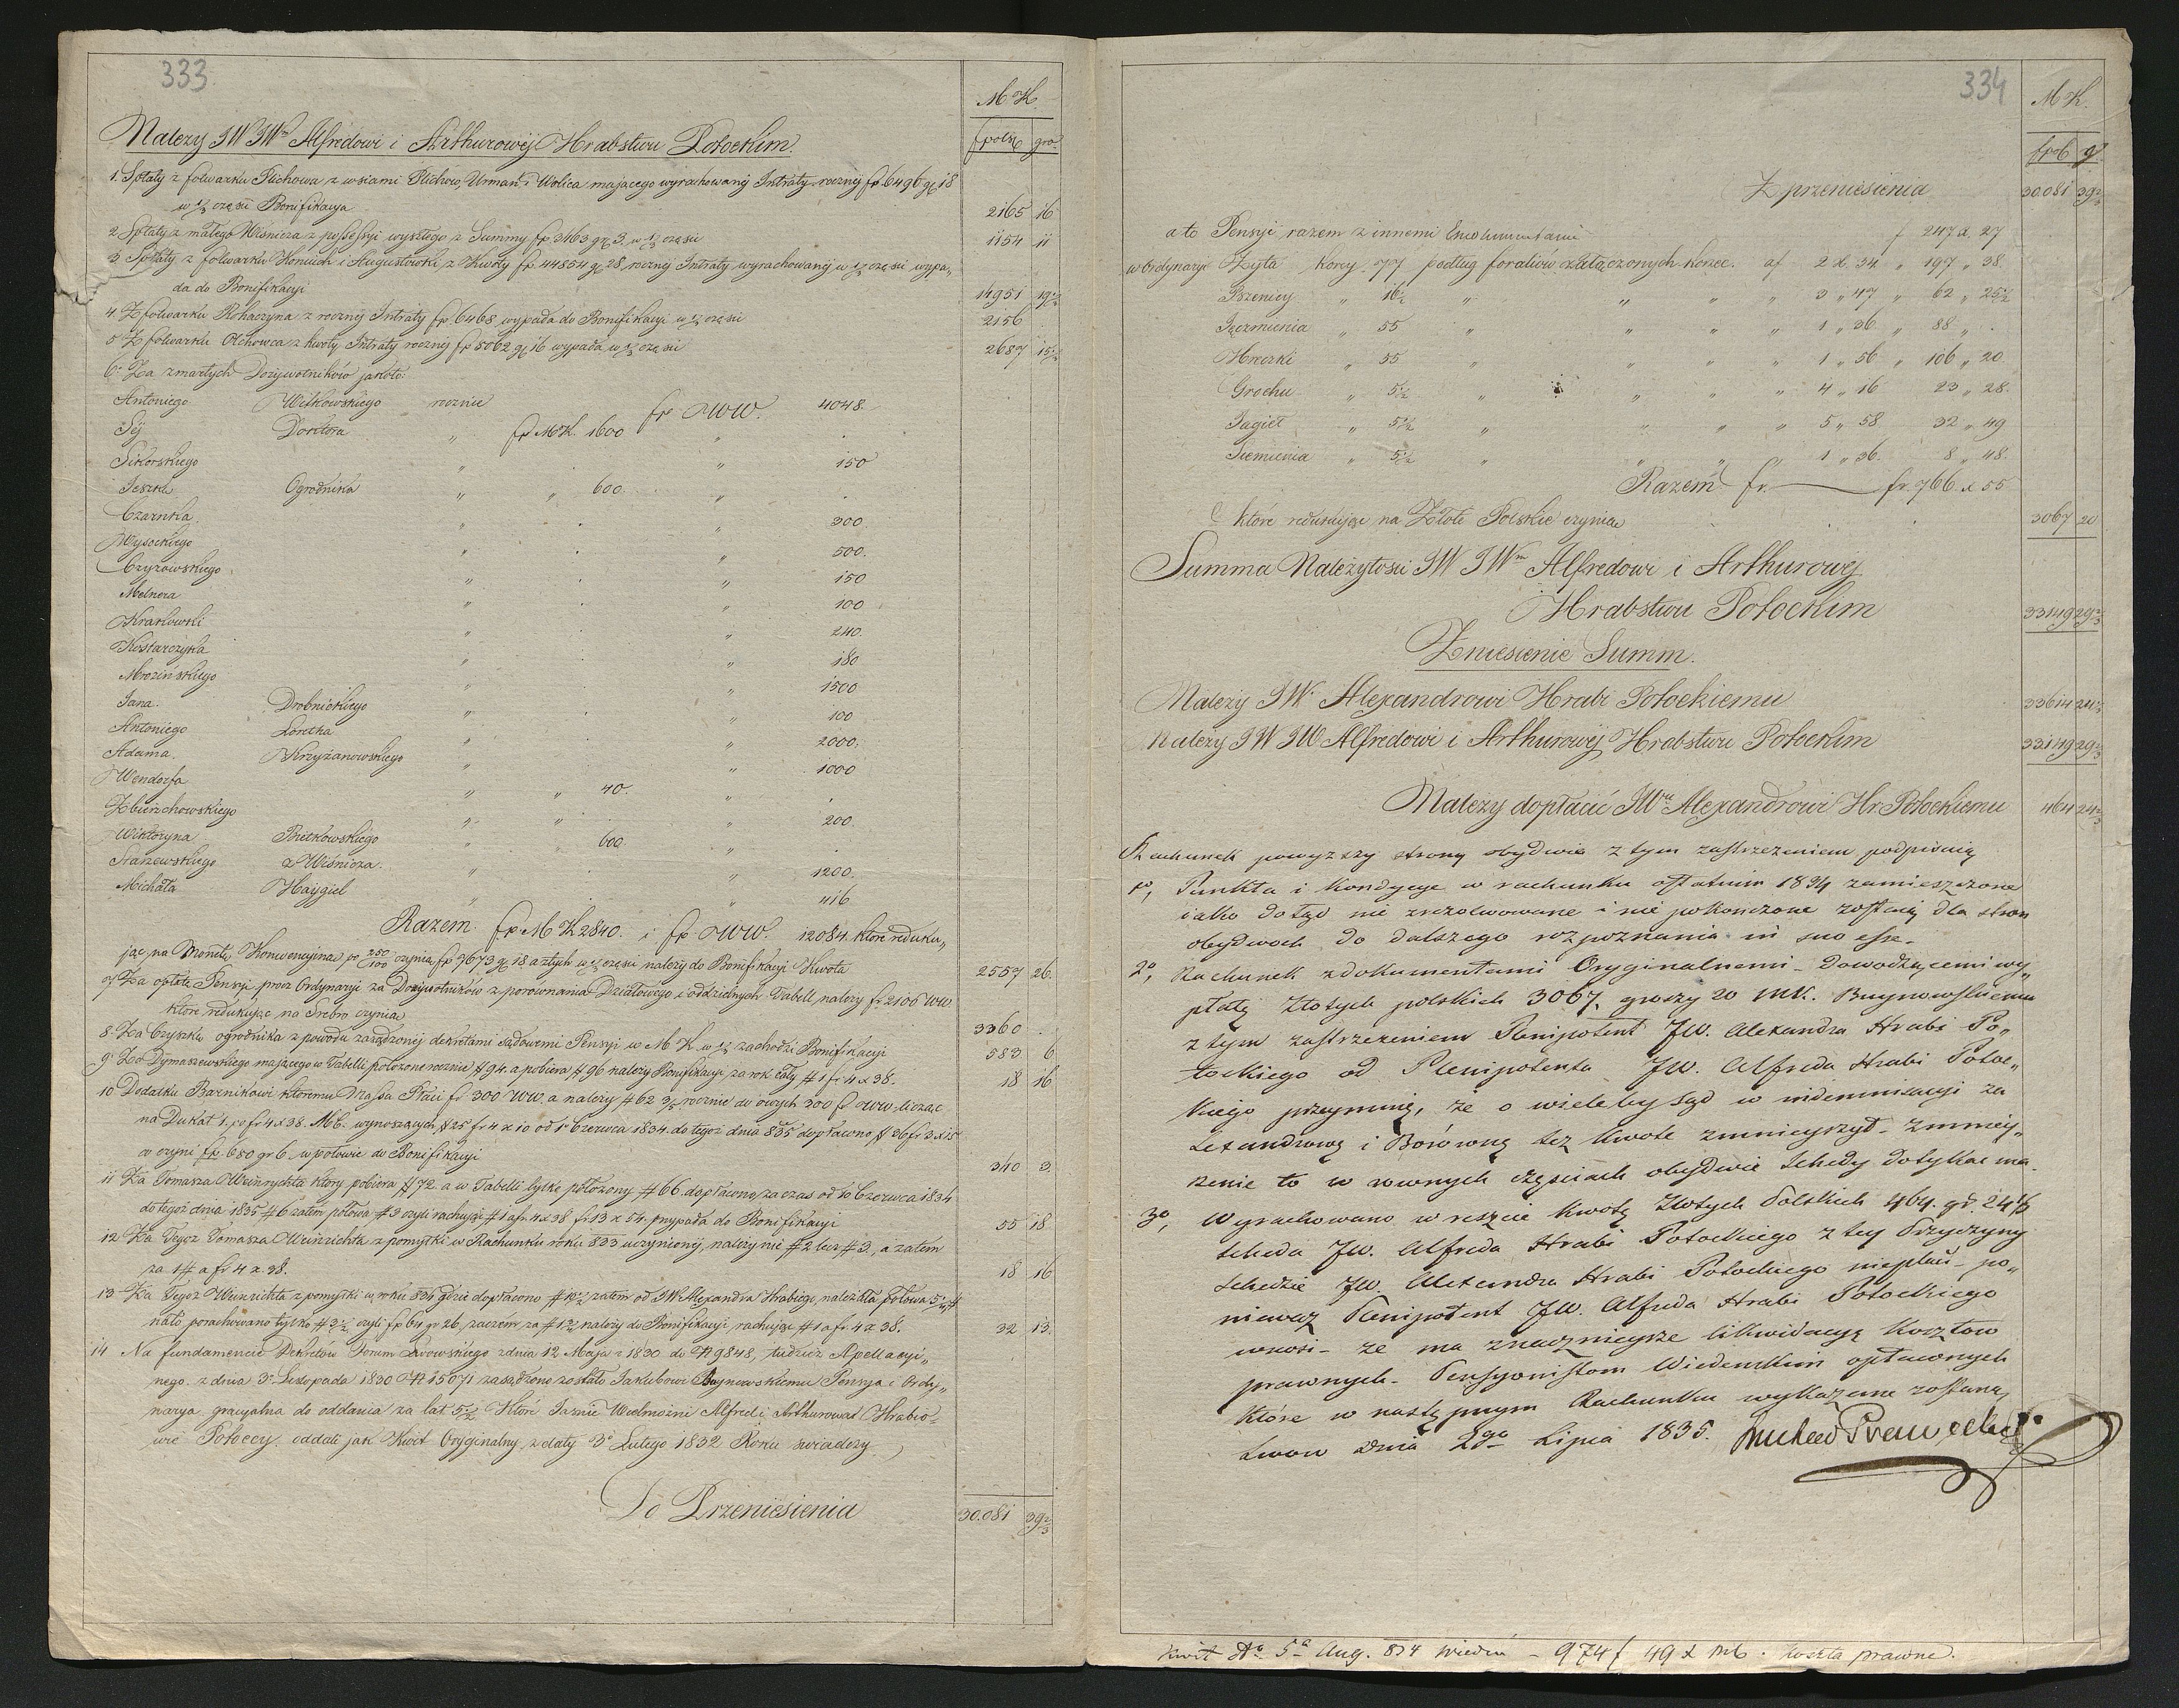 333.
M K.
fpolsk gro.
Należy JW JWm Alfredowi i Arthurowéj Hrabstwu Potockim.
1. Spłaty z folwarku Plichowa z wsiami Plichow, Urmań i Wolica mającego wyrachowanéj Intraty rocznéj fp. 6496 gr 18
w 1/3 części Bonifikacya 2165 16
2. Spłaty z małego Wiśnicza z possessyi wyszłego z Summy fp 3463 gr 3. w 1/3 części 1154 11
3. Spłaty z folwarku Koniuch i Augustowki z Kwoty fp. 44854 gr 28 rocznéj Intraty wyrachowanéj w 1/3 części wypa„
da do Bonifikacyi 14951 19 1/3
4. Z folwarku Rohaczyna z rocznéj Intraty fp. 6468 wypada do Bonifikacyi w 1/3 części 2156
5. Z folwarku Olchowca z kwoty Intraty rocznéj fp 8062 gr 16 wypada w 1/3 części 2687 15 1/3
6. Za zmarłych Dożywotników jakoto:
Antoniego Witkowskiego rocznie fp WW. 4048.
Sÿ Doktora „ fp MK. 1600 „ .
Sikorskiego „ . „ 150
Jeszke Ogrodnika „ „ 600. „ .
Czarnka „ . „ 300.
Wysockiego „ . „ 500.
Czyżowskiego „ . „ 150
Melnera „ . „ 100
Krakowski „ . „ 240.
Kostarczyka „ . „ 180
Mrozińskiego „ . „ 1500
Jana Drobnickiego „ . „ 100
Antoniego Loretka „ . „ 2000.
Adama Krzyżanowskiego „ . „ 1000
Wendorfa „ „ 40. „ .
Zbierzchowskiego „ „ . „ 200.
Wiktoryna Bietkowskiego „ „ 600. „ .
Staszewskiego z Wiśnicza. „ . „ 1200.
Michała Haygiel „ . „ 416
Razem fp M K 2840. i fp WW. 12084. które reduku„
jąc na Monetę Konwencyjną po 250/100 czynią fp 7673 gr 18. a z tych w 1/3 części należy do Bonifikacyi Kwota 2557 26.
7. Za opłatę Pensyi prócz Ordynaryi za Dożywotników z porównania Działowego i oddzielnych Tabell, należy fr. 2106 WW
które redukując na Srebro czynią 3360 .
8. Za Czyszkę ogrodnika z powodu zarządzonéj dekretami sądowemi Pensyi w M K w 1/3 zachodzi Bonifikacyi 583 6
9. Za Dymaszewskiego mającego w Tabelli położone rocznie # 94. a pobiera # 96 należy Bonifikacyi za rok cały # 1 fr 4 x 38. 18 16
10. Dodatku Barnikowi któremu Massa Płaci fr 300 WW. a należy # 62 3/5 rocznie do owych 300 fr WW. licząc
na Dukat 1. po fr 4 x 38. M K. wynoszących # 25 fr 4 x 10 od 1o Czerwca 1834. do tegoż dnia 835 dopłacono # 36 fr 3 x 15
co czyni fp. 680 gr 6. w połowie do Bonifikacyi 340 3
11. Za Tomasza Weinrychta który pobiera # 72. a w Tabelli tylko położony # 66. dopłacono za czas od 1o Czerwca 1834
do tegoż dnia 1835 # 6 zatem połowa # 3 czyli rachując # 1 a fr. 4 x 38 fr 13 x 54. przypada do Bonifikacyi 55 18
12. Za Tegoż Tomasza Weinrichta z pomyłki w Rachunku roku 833 uczynionéj, należy nie # 2 lecz # 3, a zatem
za 1 # a fr 4 x 38. 18 16
13. Za Tegoż Weinrichta z pomyłki w roku 836 gdzie dopłacono # 10 1/2 zatem od JW. Alexandra Hrabiego, należała połowa 5 1/4 #
nato porachowano tylko # 3 1/2 czyli fp 64 gr 26, zaczem za # 1 3/4 należy do Bonifikacyi rachując # 1 a fr. 4 x 38. 32 13.
14. Na fundamencie Dekretów Forum Lwowskiego z dnia 12 Maja r. 1830. do N 9848, tudzież Apellacyi„
nego z dnia 3o Listopada 1830 N 15071 zasądzone zostało Jakubowi Buynowskiemu Pensya i Ordy„
narya gracyalna do oddania za lat 5 1/2. Które Jaśnie Wielmożni Alfred i Arthurowa Hrabio„
wie Potoccy oddali jak Kwit Oryginalny z daty 3o Lutego 1832 Roku świadczy
Do Przeniesienia 30.081 39 2/3
334
M K.
frb g
Z przeniesienia 30.081 39 2/3
a to Pensyi razem z innemi Emolumentami f 247 x 27
w Ordynaryi Żyta Korcy 77 podług foraliow załączonych korzec. af 2 x 34. „ 197 „ 38.
Pszenicy „ 16 1/2 „ „ „ „ 3 „ 47 „ 62 „ 25 1/2
Jęczmienia „ 55 „ „ „ „ 1 „ 36 „ 88 „ .
Hreczki „ 55 „ „ „ „ 1 „ 56 „ 106 „ 20
Grochu „ 5 1/2 „ „ „ „ 4 „ 16 23 „ 28.
Jagieł „ 5 1/2 „ „ „ „ 5 „ 58 32 „ 49
Siemienia „ 5 1/2 „ „ „ „ 1 „ 36. 8 „ 48.
Razem fr. fr. 766. x 55
które redukując na Złote Polskie czynią 3067 20
Summa Należytości JW JWm Alfredowi i Arthurowéj
Hrabstwu Potockim 33149 29 2/3
Zniesienie Summ.
Należy JW. Alexandrowi Hrabi Potockiemu 33614 24 1/3
Należy JW JW Alfredowi i Arthurowéj Hrabstwu Potockim 33149 29 2/3
Należy dopłacić JWu Alexandrowi Hr. Potockiemu 464 24 2/3
Rachunek powyższy strony obydwie z tym zastrzeżeniem podpisują
1o, Punkta i Kondycye w rachunku ostatnim 1834 zamieszczone
iako dotąd nie zrezolwowane i nie pokończone zostają dla stron
obydwoch do dalszego rozpoznania in suo esse.
2o, Rachunek z dokumentami Oryginalnemi - dowodzącemi wy„
płatę Złotych polskich 3067. groszy 20 MK. Buynowskiemu
z tym zastrzeżeniem Plenipotent JW. Alexandra Hrabi Po„
tockiego od Plenipotenta JW. Alfreda Hrabi Potoc„
kiego przeymuię, że o wieleby sąd w indemnizacyi za
Lexandrową i Borówną też kwotę zmnieyszył - zmniey„
szenie to w rownych częściach obydwie Schedy dotykac ma.
3o, Wyrachowano w reszcie Kwotę Złotych Polskich 464. gr. 24 2/3
Scheda JW. Alfreda Hrabi Potockiego z tey Przyczyny
Schedzie JW. Alexandra Hrabi Potockiego nie płaci - po„
nieważ Plenipotent JW. Alfreda Hrabi Potockiego
wnosi - że ma znacznieysze likwidacyę Kosztow
prawnych - Pensyonistom Wiedenskim opłaconych
Które w następnym Rachunku wykazane zostaną
Lwow dnia 2go Lipca 1835.
Kwit do 5o Aug. 834 Wiedeń - 974 f 49 x M. Koszta prawne.